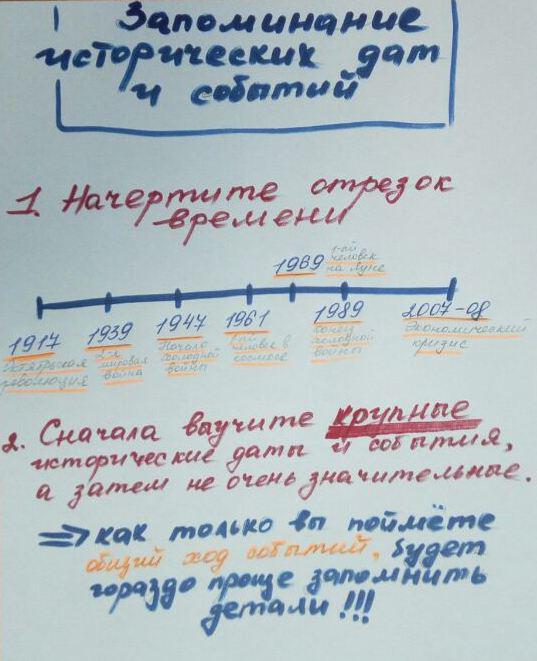 Запоминание
исторических дат
и событий
1. Начертите отрезок
времени
1969 1-ый
человек
на Луне
1917
Октябрьская
революция
1939
2-я
мировая
война
1947
Начало
холодной
войны
1961
1-ый
человек в
космосе
1989
Конец
холодной
войны
2007-08
Экономический
кризис
2. Сначала выучите крупные
исторические даты и события,
а затем не очень значительные.
⇒ как только вы поймёте
общий ход событий, будет
гораздо проще запомнить
детали!!!